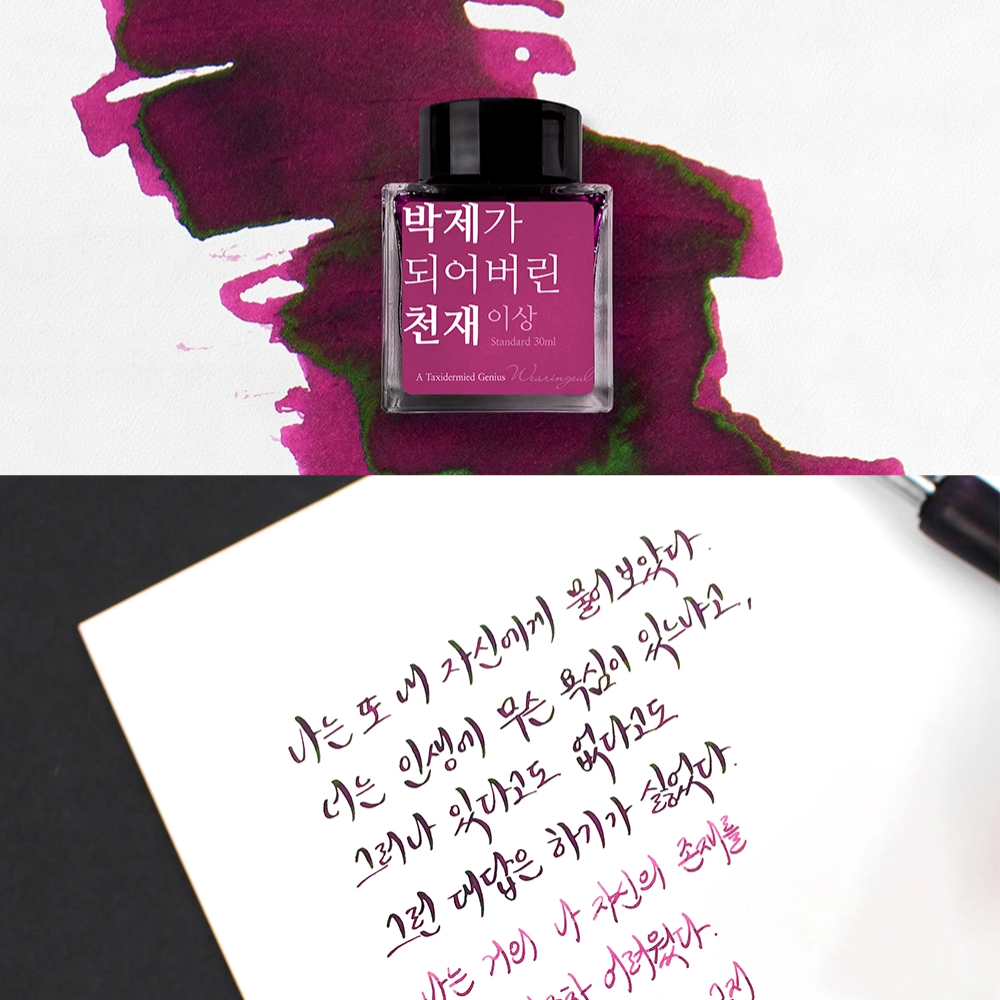 박제가
되어버린
천재 이상
Standard 30ml
A Taxidermied Genius Wearingeul
나는 또 내 자신에게 물어보았다.
너는 인생에 무슨 욕심이 있느냐고,
그러나 있다고도 없다고도
그런 대답은 하기가 싫었다.
나는 거의 나 자신의 존재를
어려웠다.